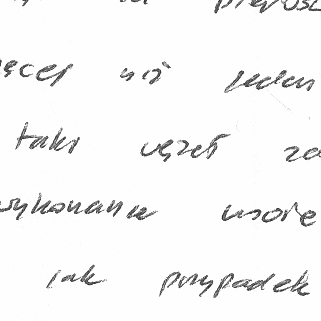 ęcej niż jeden
taki węzeł za
wykonanie może
jak przypadek